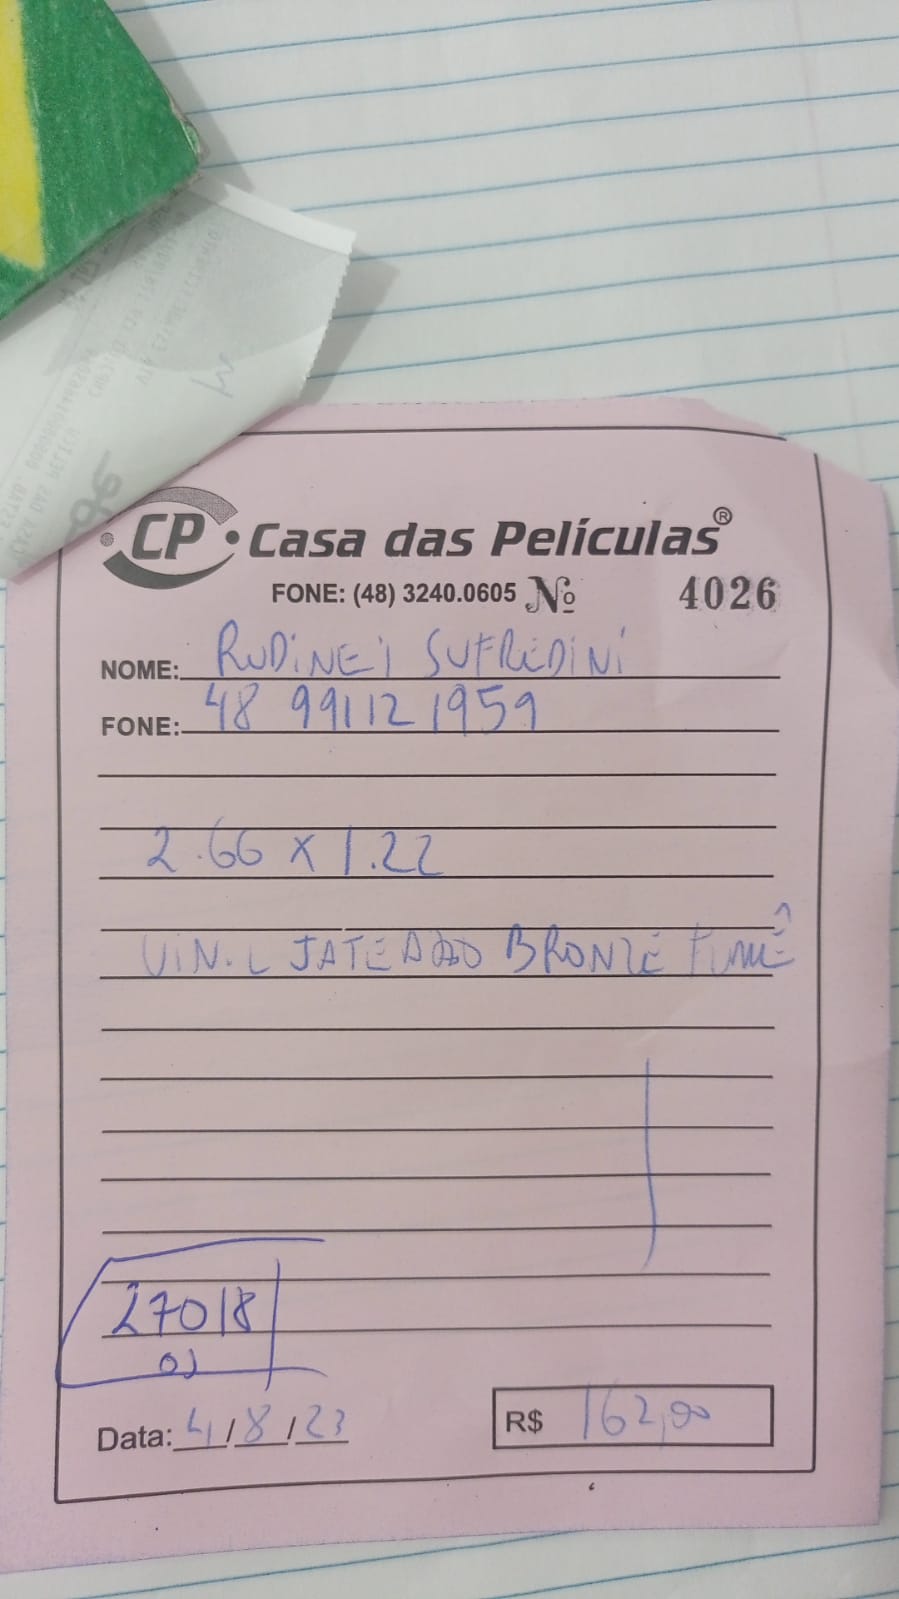 CP • Casa das Películas®
FONE: (48) 3240.0605 Nº 4026
NOME: RUDINEI SUFREDINI
FONE: 48 991121959
2.66 x 1.22
VINIL JATEADO BRONZE FUMÊ
27018
Data: 4/8/23 R$ 162,00